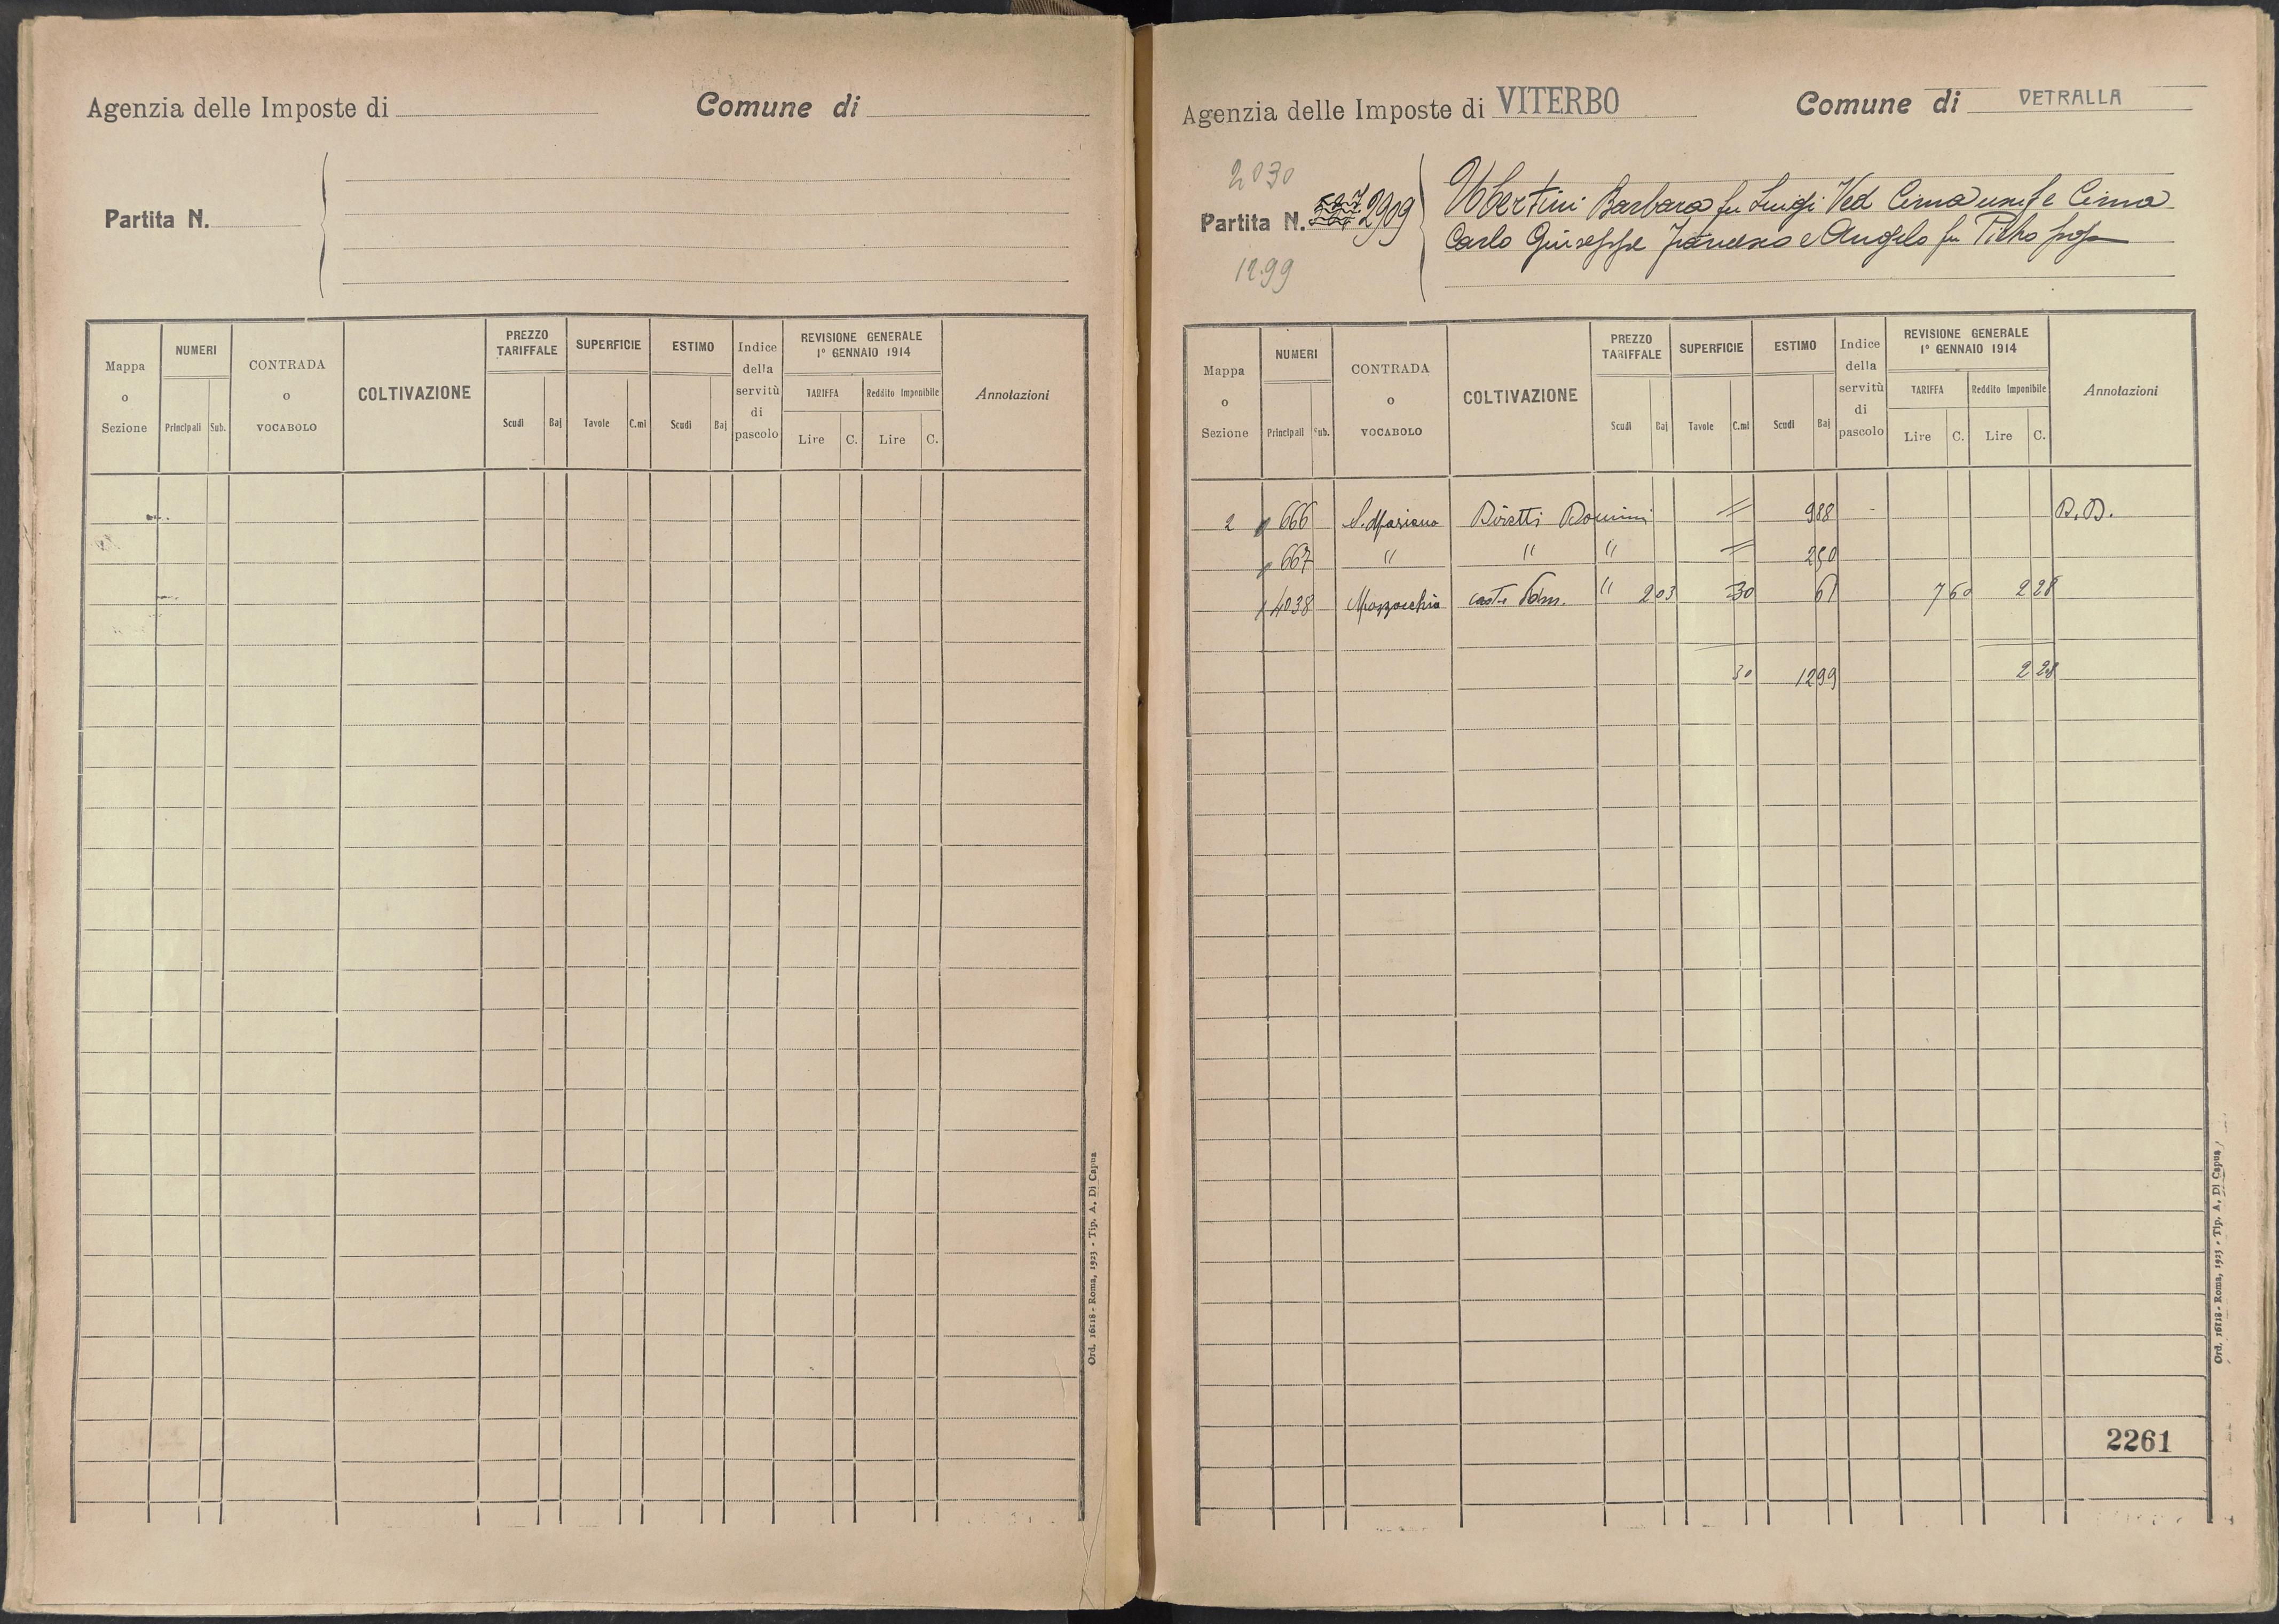 Agenzia delle Imposte di
Comune di
Partita N.
Mappa o Sezione
NUMERI
Principali Sub.
CONTRADA o VOCABOLO
COLTIVAZIONE
PREZZO TARIFFALE
Scudi Baj
SUPERFICIE
Tavole C.mi
ESTIMO
Scudi Baj
Indice della servitù di pascolo
REVISIONE GENERALE
1° GENNAIO 1914
TARIFFA Reddito Imponibile
Lire C. Lire C.
Annotazioni
Ord. 16118 - Roma, 1923 - Tip. A. Di Capua
Agenzia delle Imposte di VITERBO
Comune di VETRALLA
2030
Partita N. 2909
1299
Ubertini Barbara fu Luigi Ved Cima usuf e Cima
Carlo Giuseppe Francesco e Angelo fu Pietro prop
Mappa o Sezione
NUMERI
Principali Sub.
CONTRADA o VOCABOLO
COLTIVAZIONE
PREZZO TARIFFALE
Scudi Baj
SUPERFICIE
Tavole C.mi
ESTIMO
Scudi Baj
Indice della servitù di pascolo
REVISIONE GENERALE
1° GENNAIO 1914
TARIFFA Reddito Imponibile
Lire C. Lire C.
Annotazioni
2 666 Diretti Domini 988 D.D.
667 " " " 250
4038 " 203 30 61 7 60 2 28
30 1299 2 28
2261
Ord. 16118 - Roma, 1923 - Tip. A. Di Capua